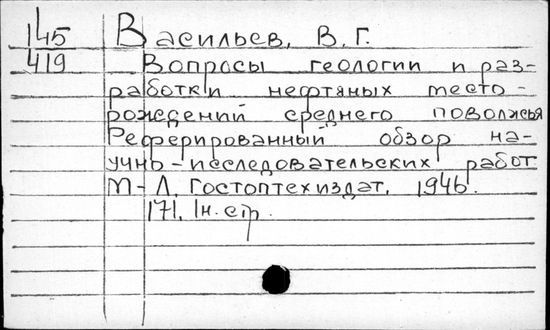 145
419
Васильев, В. Г.
Вопросы геологии и раз-
работки нефтяных место-
рождений среднего поволжья
Реферированный обзор на-
учно-исследовательских работ
М-Л, Гостоптехиздат, 1946.
171, 1н. стр.